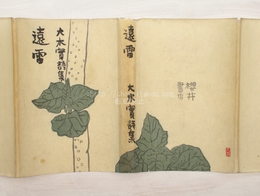 遠雪
大木實詩集
遠雪
大木實詩集
櫻井
書店